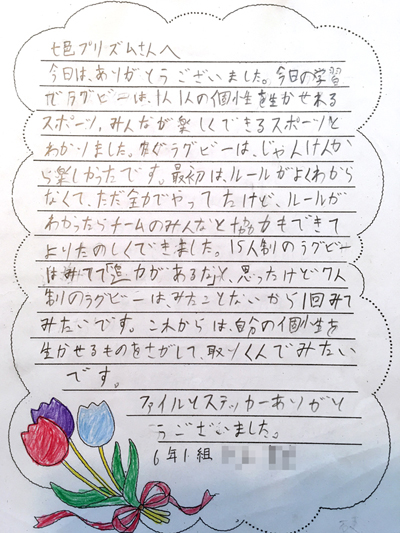 七邑プリズムさんへ
今日は、ありがとうございました。今日の学習
でラグビーは、1人1人の個性を生かせれる
スポーツ。みんなが楽しくできるスポーツと
わかりました。ラグビーは、じゃんけんか
ら楽しかったです。最初は、ルールがよくわから
なくて、ただ全力でやってたけど、ルールが
わかったらチームのみんなと協力もできて
よりたのしくできました。15人制のラグビー
はみてて「迫力があるな」と、思ったけど7人
制のラグビーはみたことないから1回みて
みたいです。これからは、自分の個性を
生かせるものをさがして、取りくんでみたい
です。
ファイルとステッカーありがと
うございました。
6年1組